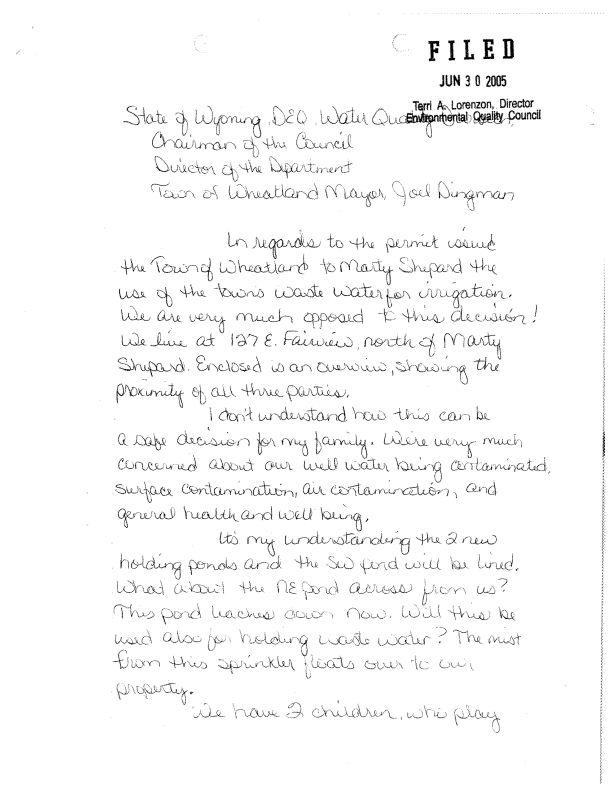 FILED
JUN 30 2005
Terri A. Lorenzon, Director
Environmental Quality Council
State of Wyoming, DEQ, Water Quality
Chairman of the Council
Director of the Department
Town of Wheatland Mayor, Joel Dingman
In regards to the permit issued
the Town of Wheatland to Marty Shepard the
use of the towns waste water for irrigation.
We are very much opposed to this decision!
We live at 127 E. Fairview, north of Marty
Shepard. Enclosed is an overview, showing the
proximity of all three parties.
I don't understand how this can be
a safe decision for my family. We're very much
concerned about our well water being contaminated,
surface contamination, air contamination, and
general health and well being.
Its my understanding the 2 new
holding ponds and the SW pond will be lined.
What about the NE pond across from us?
This pond leaches down now. Will this be
used also for holding waste water? The mist
from this sprinkler floats over to our
property.
We have 2 children, who play